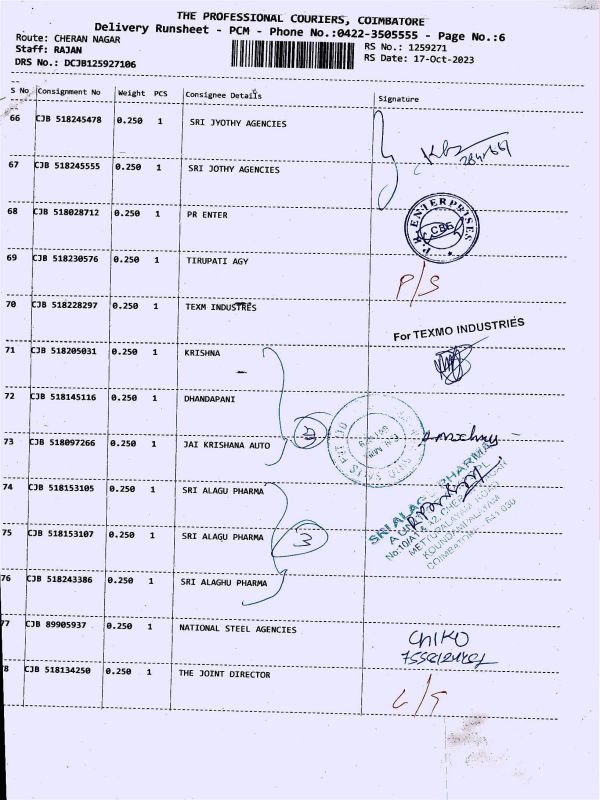 THE PROFESSIONAL COURIERS, COIMBATORE
Delivery Runsheet - PCM - Phone No.:0422-3505555 - Page No.:6
Route: CHERAN NAGAR
RS No.: 1259271
Staff: RAJAN
RS Date: 17-Oct-2023
DRS No.: DCJB125927106
S No Consignment No Weight PCS Consignee Details Signature
66 CJB 518245478 0.250 1 SRI JYOTHY AGENCIES
67 CJB 518245555 0.250 1 SRI JOTHY AGENCIES
68 CJB 518028712 0.250 1 PR ENTER
P.R. ENTERPRISES
CBE
69 CJB 518230576 0.250 1 TIRUPATI AGY
P/S
70 CJB 518228297 0.250 1 TEXM INDUSTRES
For TEXMO INDUSTRIES
71 CJB 518205031 0.250 1 KRISHNA
72 CJB 518145116 0.250 1 DHANDAPANI
73 CJB 518097266 0.250 1 JAI KRISHANA AUTO
74 CJB 518153105 0.250 1 SRI ALAGU PHARMA
SRI ALAGU PHARMA
METTUPALAYAM ROAD
KOUNDAMPALAYAM
COIMBATORE - 641 030
75 CJB 518153107 0.250 1 SRI ALAGU PHARMA
3
76 CJB 518243386 0.250 1 SRI ALAGHU PHARMA
77 CJB 89905937 0.250 1 NATIONAL STEEL AGENCIES
CHIKO
8 CJB 518134250 0.250 1 THE JOINT DIRECTOR